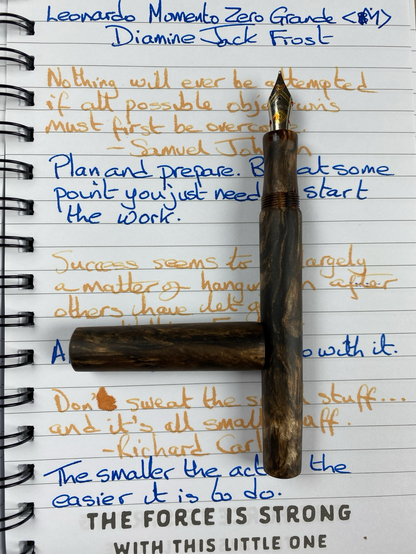 Leonardo Momento Zero Grande <M>
Diamine Jack Frost
Nothing will ever be attempted
if all possible
must first be
- Samuel
Plan and prepare. at some
point you just need start
the work.
Success seems to largely
a matter of after
others have let
A with it.
Don't sweat the stuff...
and it's all
- Richard
The smaller the the
easier it is to do.
THE FORCE IS STRONG
WITH THIS LITTLE ONE